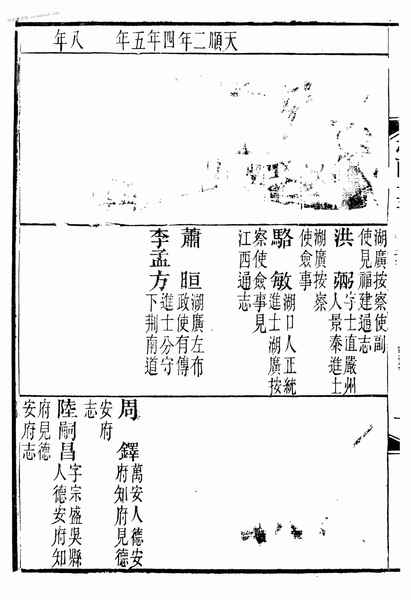 天順二年四年五年 八年
湖廣按察使副
使見福建通志
洪 弼 字士直嚴州
人景泰進士
湖廣按察
使僉事
駱 敏 湖口人正統
進士湖廣按
察使僉事見
江西通志
蕭 晅 湖廣左布
政使有傳
李孟方 進士分守
下荆南道
周 鐸 萬安人德安
府知府見德
安府
志
陸嗣昌 字宗盛吳縣
人德安府知
府見德
安府志